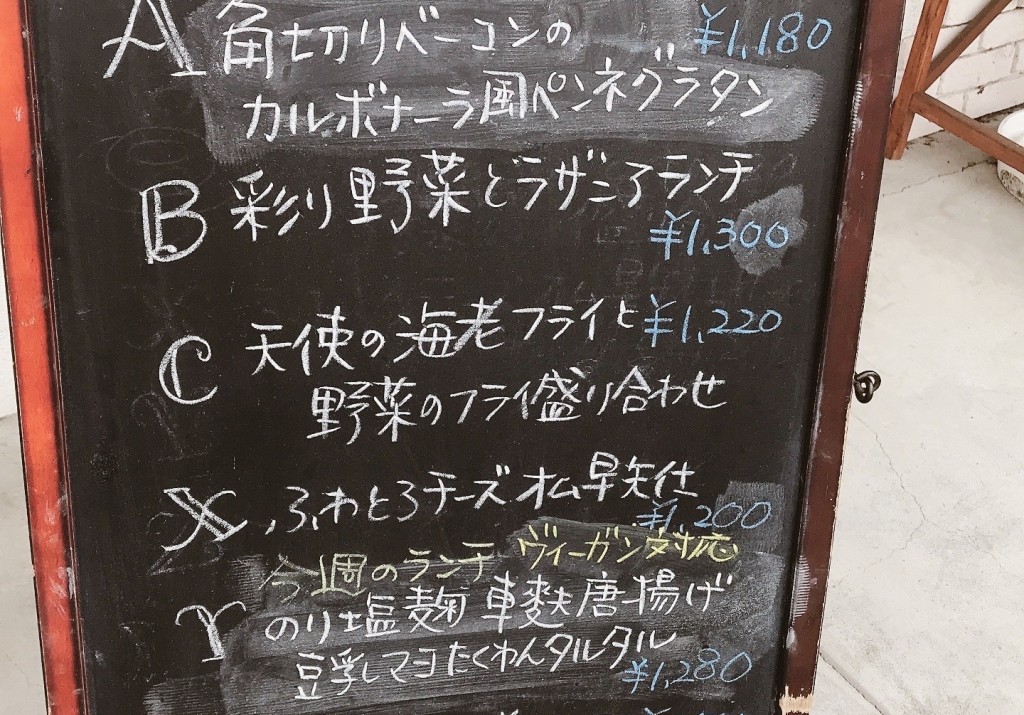 A 角切りベーコンの ¥1,180
カルボナーラ風ペンネグラタン
B 彩り野菜とラザニアランチ
¥1,300
C 天使の海老フライと ¥1,220
野菜のフライ盛り合わせ
X ふわとろチーズオム早矢仕
¥1,200
今週のランチ ヴィーガン対応
Y のり塩麹車麩唐揚げ
豆乳しマヨたくわんタルタル
¥1,280